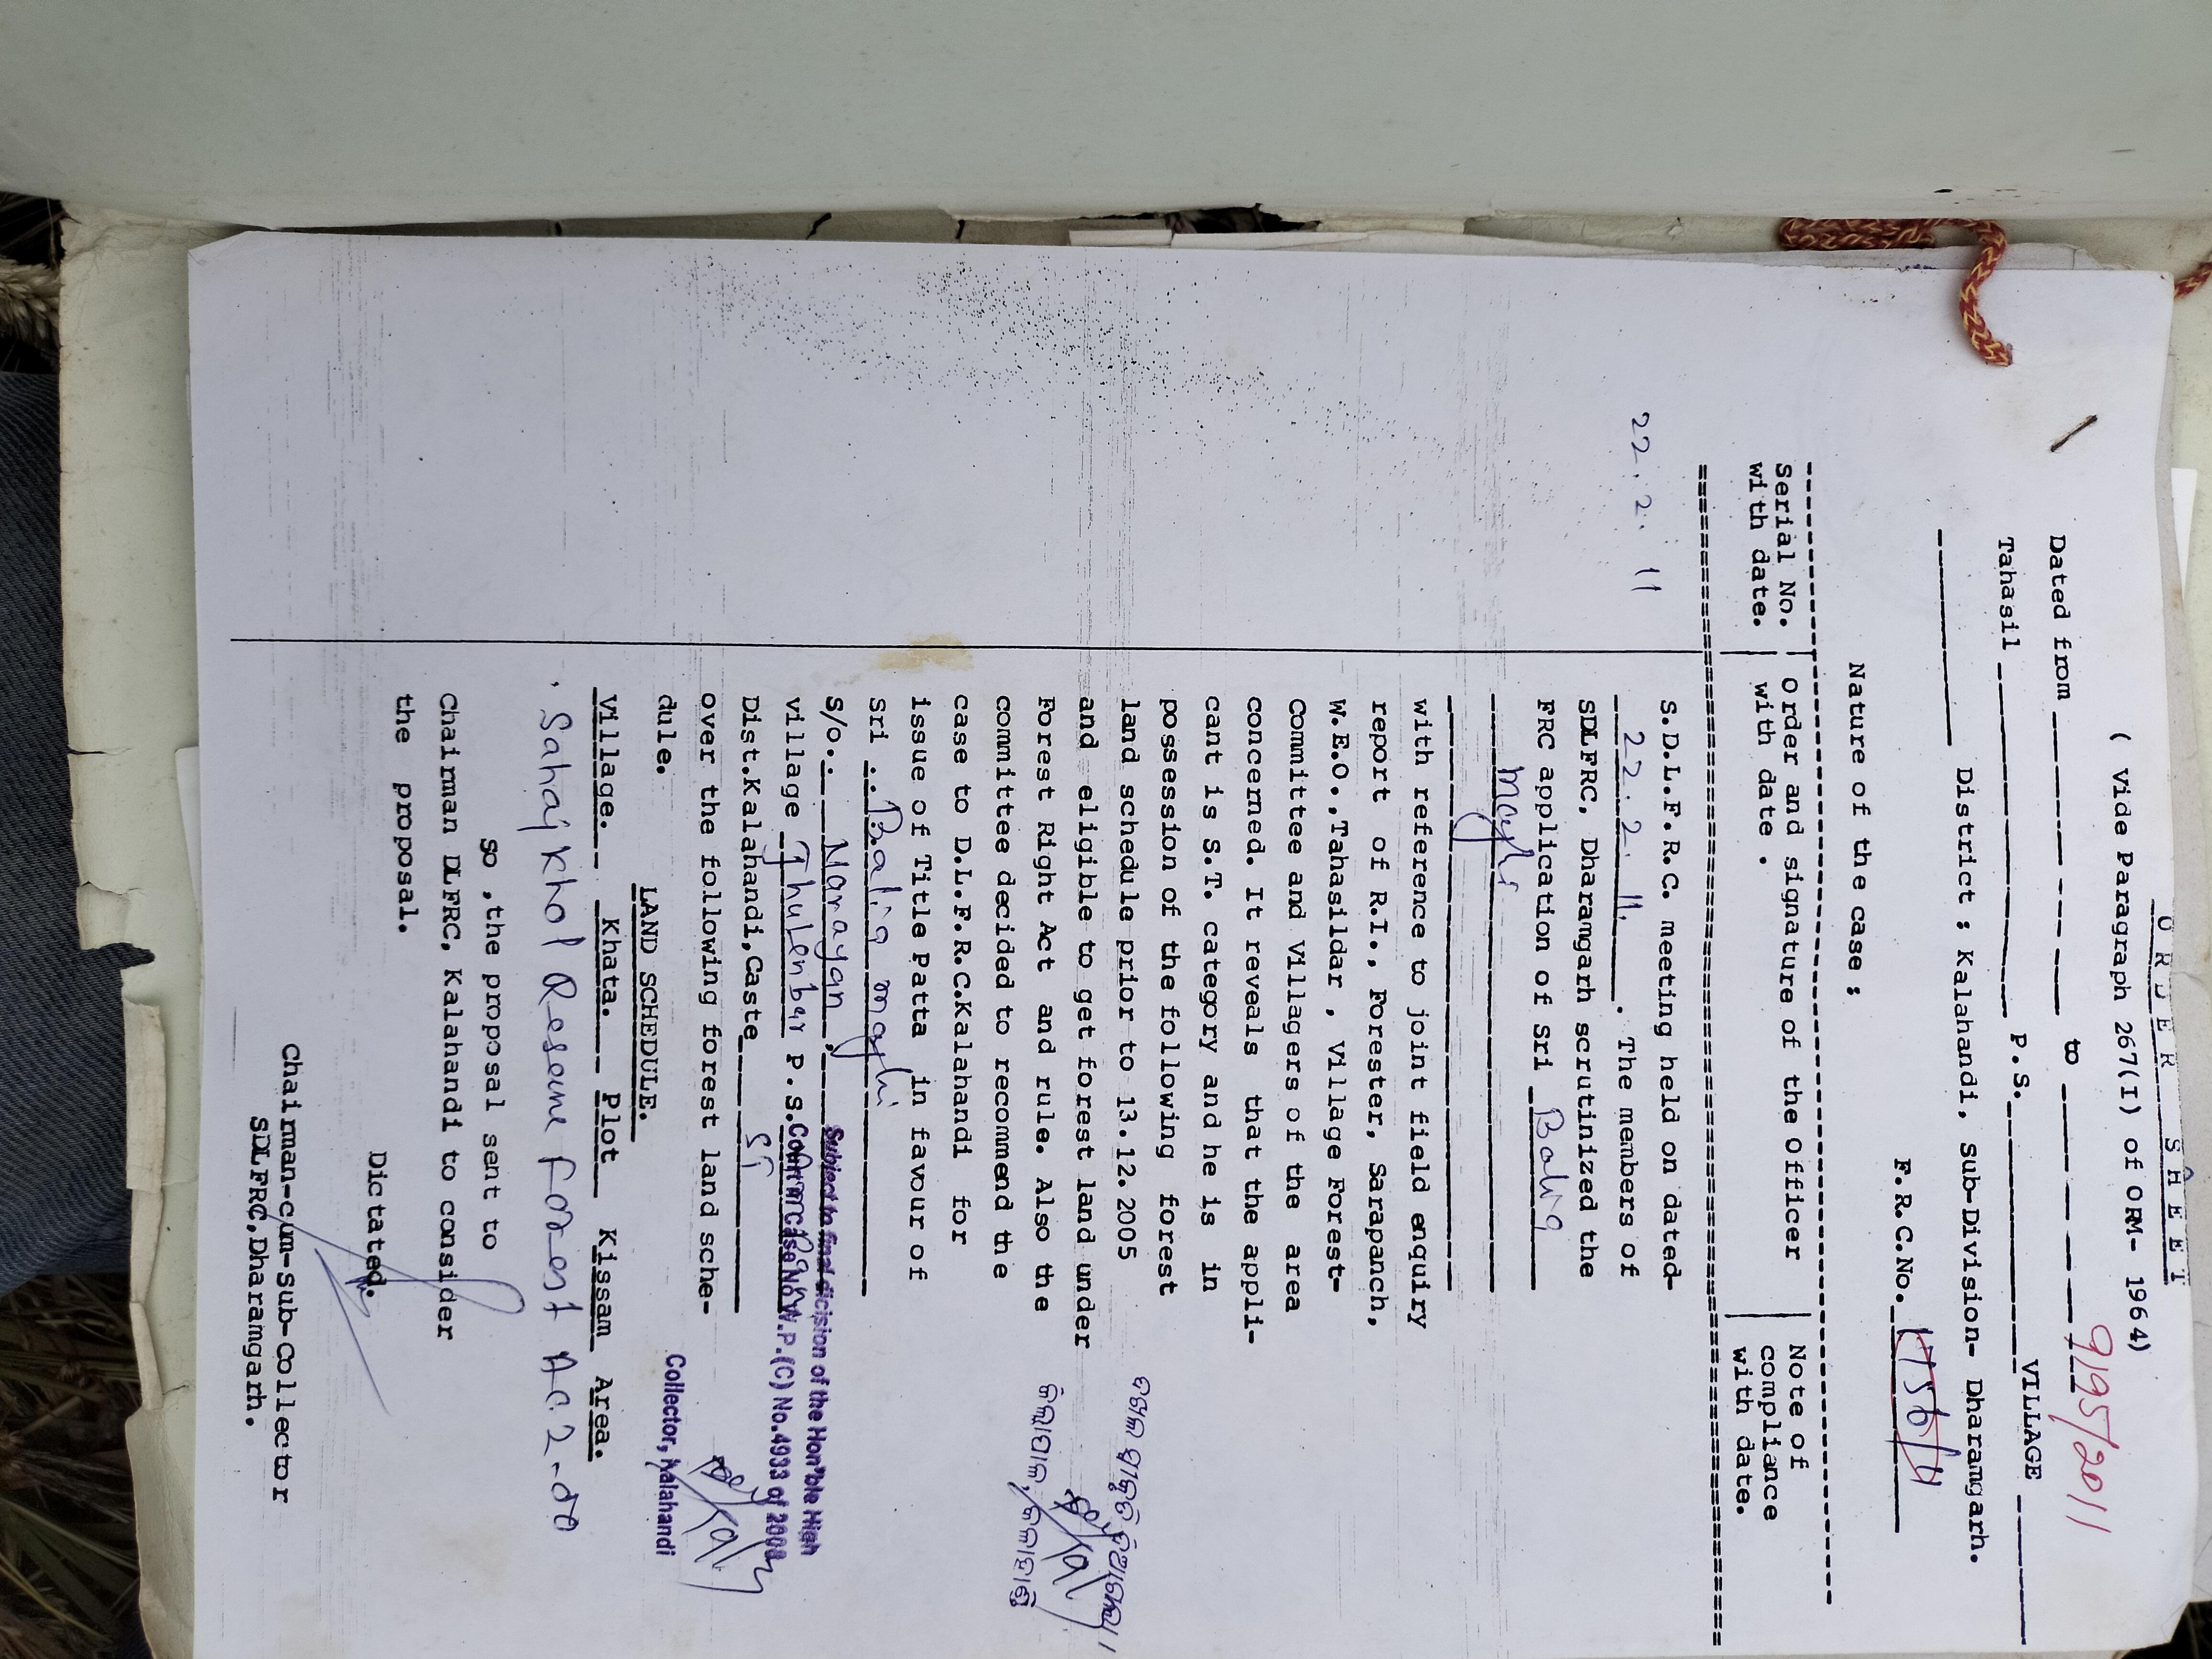 O R D E R  S H E E T
( Vide Paragraph 267(I) of ORM- 1964)
Dated from ________ to ________ 9195/2011
Tahasil ________ P.S. ________ VILLAGE ________
________ District : Kalahandi, Sub-Division- Dharamgarh.
F.R.C.No. 1756/11
Nature of the case :
Serial No. with date. | Order and signature of the Officer with date . | Note of compliance with date.
22.2.11
S.D.L.F.R.C. meeting held on dated-
22.2.11. . The members of
SDLFRC, Dharamgarh scrutinized the
FRC application of Sri Balia
majhi
with reference to joint field enquiry
report of R.I., Forester, Sarapanch,
W.E.O.,Tahasildar , Village Forest-
Committee and Villagers of the area
concerned. It reveals that the appli-
cant is S.T. category and he is in
possession of the following forest
land schedule prior to 13.12.2005
and eligible to get forest land under
Forest Right Act and rule. Also the
committee decided to recommend the
case to D.L.F.R.C.Kalahandi for
issue of Title Patta in favour of
Sri ..Balia majhi
S/o.. Narayan ,
village Thulenbar P.S.
Dist.Kalahandi,Caste ST
over the following forest land sche-
dule.
ଜିଲ୍ଲାପାଳ, କଳାହାଣ୍ଡି
Subject to final dicision of the Hon'ble High
Court in Case No W.P.(C) No.4933 of 2008
Collector, Kalahandi
LAND SCHEDULE.
Village. Khata. Plot Kissam Area.
Sahajkhol Reserve Forest Ac.2-00
So ,the proposal sent to
Chairman DLFRC, Kalahandi to consider
the proposal.
Dictated.
Chairman-cum-Sub-Collector
SDLFRC,Dharamgarh.